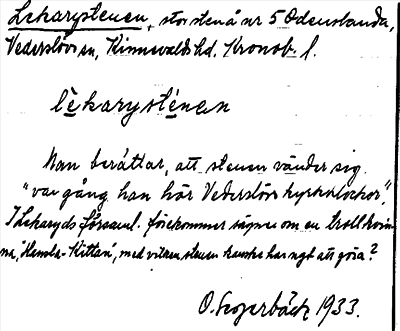 Lekarystenen, stor sten å nr 5 Odenslanda,
Vederslövs sn, Kinnevalds hd. Kronob. l.
lèkarysténen
Man berättar, att stenen vänder sig
"var gång han hör Vederslövs kyrkklockor".
I Lekaryds församl. förekommer sägner om en trollkvin-
na, "Hamla-Kittan", med vilken stenen kanske har ngt att göra?
O. 1933.